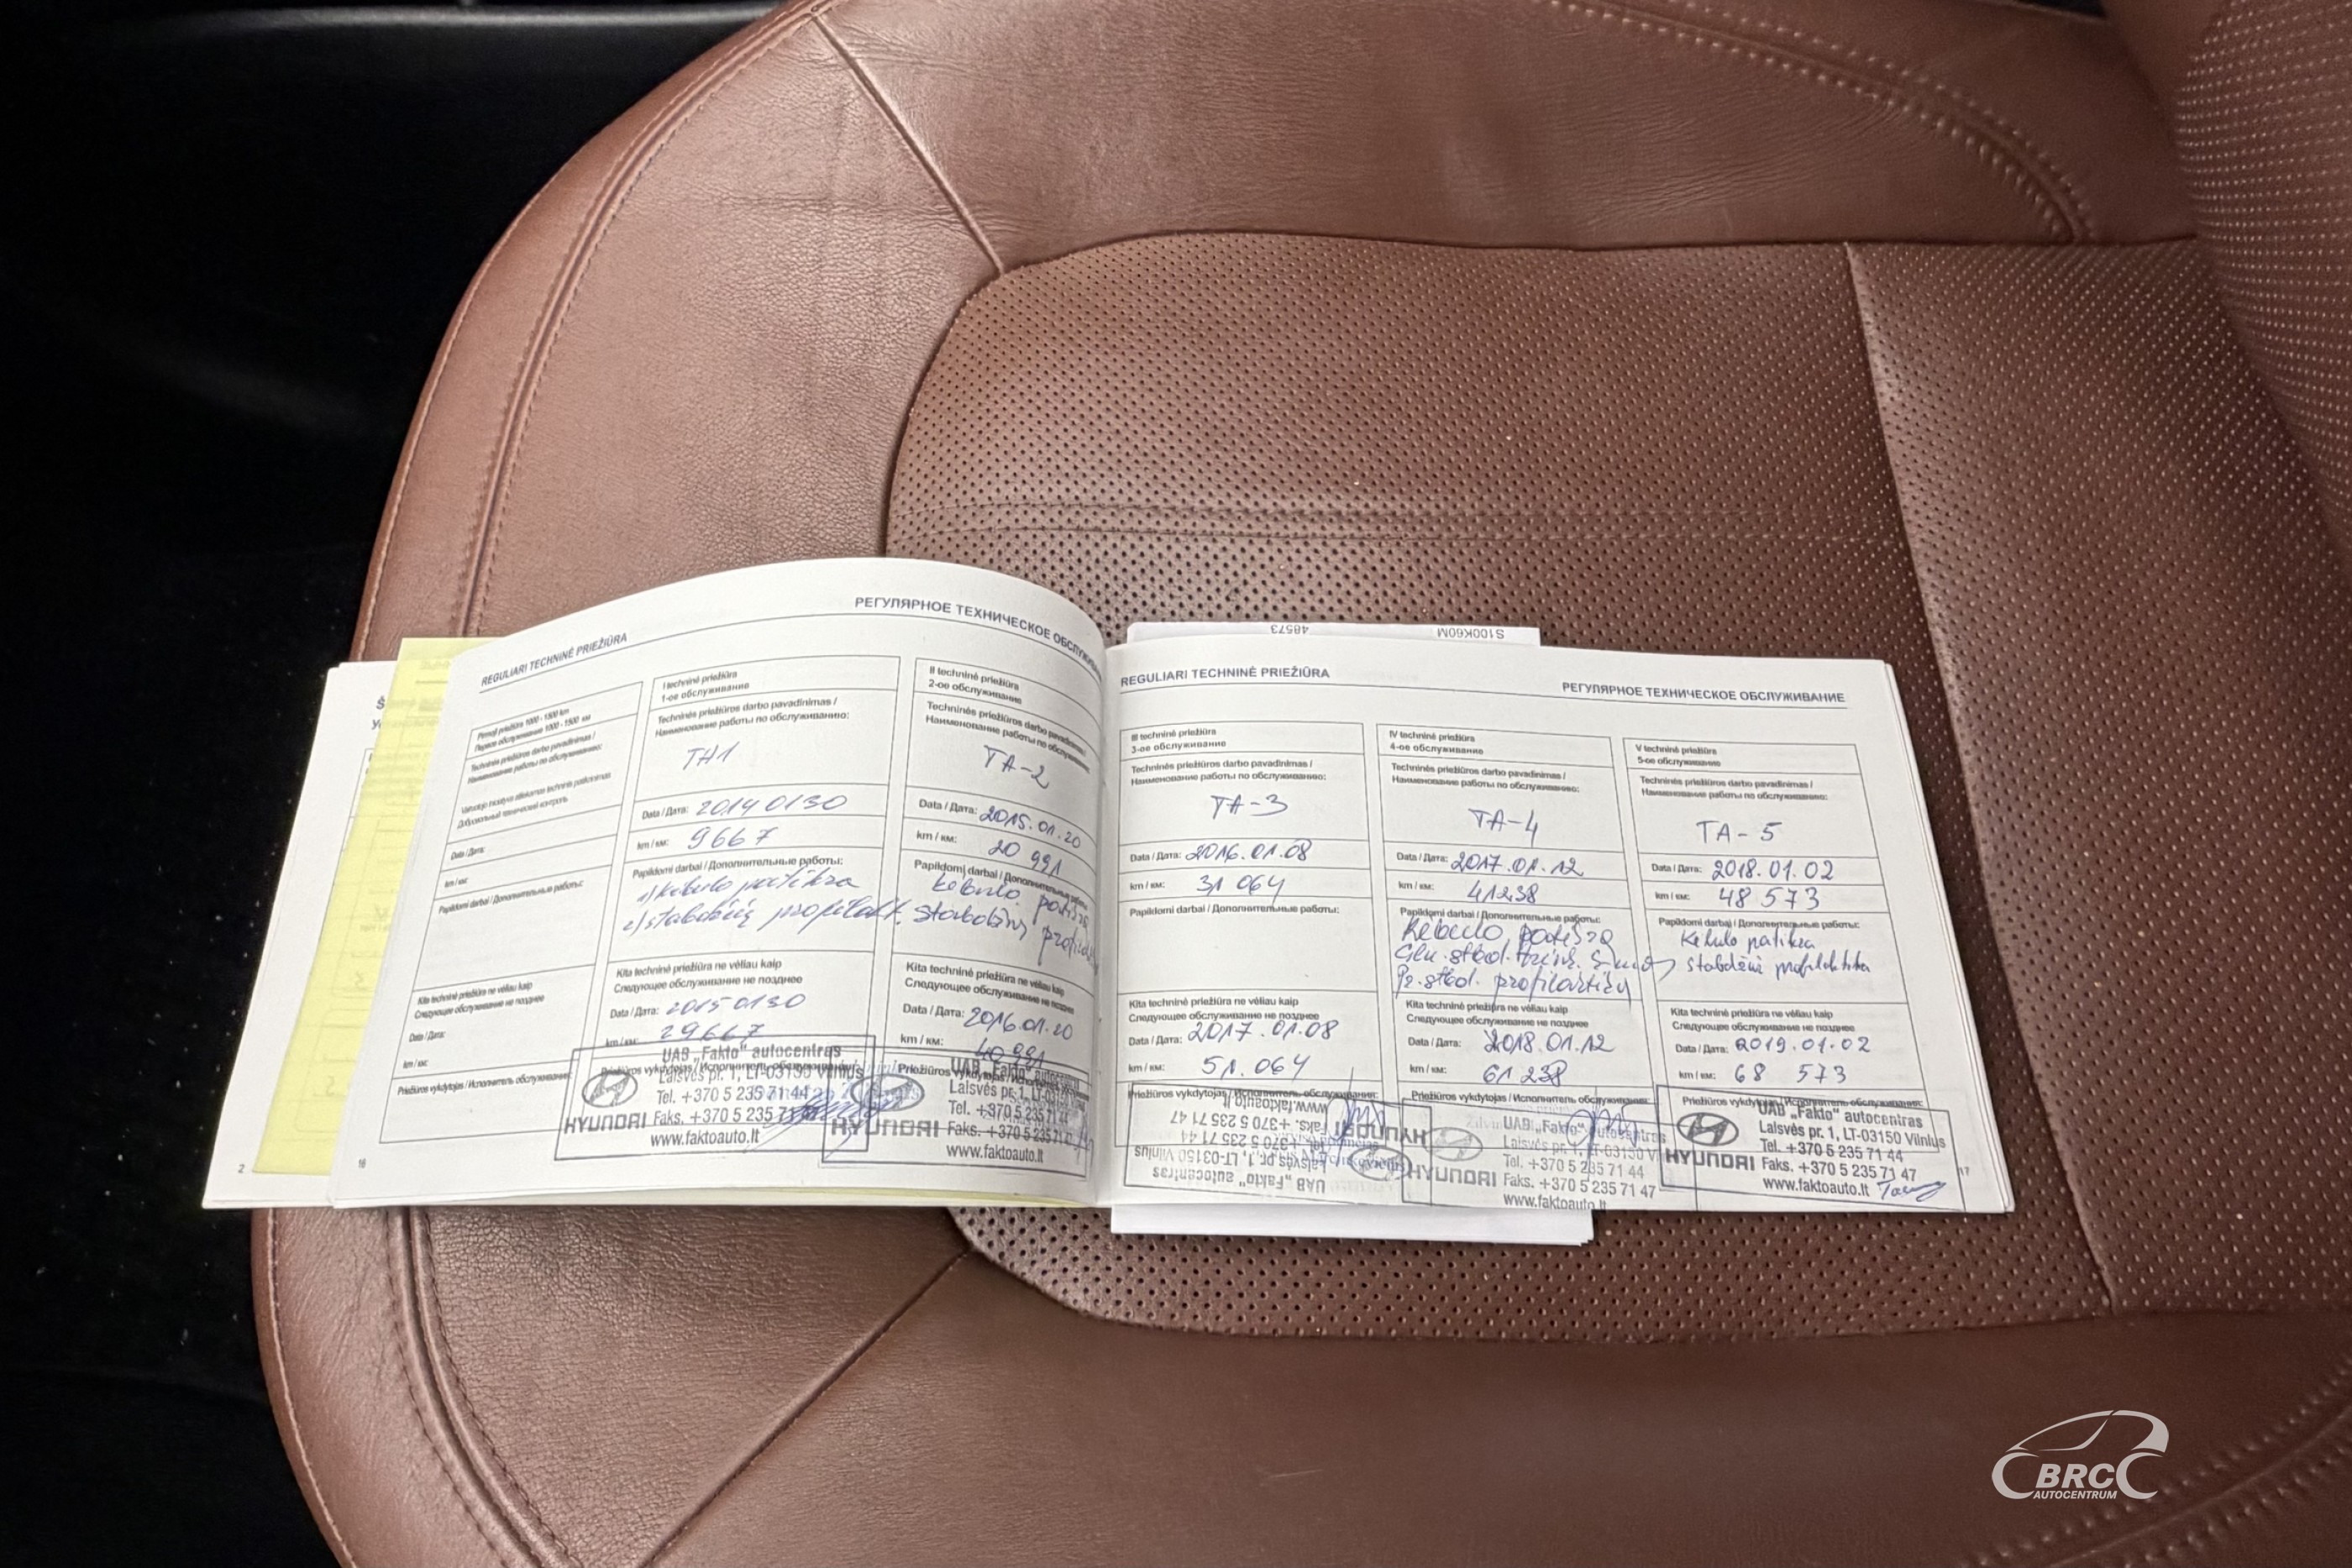 2
16
REGULIARI TECHNINĖ PRIEŽIŪRA
РЕГУЛЯРНОЕ ТЕХНИЧЕСКОЕ ОБСЛУЖИВАНИЕ
Pirmoji priežiūra 1000 - 1500 km
Первое обслуживание 1000 - 1500 км
Techninės priežiūros darbo pavadinimas /
Наименование работы по обслуживанию:
Data / Дата:
km / км:
Papildomi darbai / Дополнительные работы:
Kita techninė priežiūra ne vėliau kaip
Следующее обслуживание не позднее
Data / Дата:
km / км:
Priežiūros vykdytojas / Исполнитель обслуживания:
I techninė priežiūra
1-ое обслуживание
Techninės priežiūros darbo pavadinimas /
Наименование работы по обслуживанию:
TA1
Data / Дата: 2014 01 30
km / км: 9667
Papildomi darbai / Дополнительные работы:
1) kėbulo patikra
2) stabdžių profilakt.
Kita techninė priežiūra ne vėliau kaip
Следующее обслуживание не позднее
Data / Дата: 2015 01 30
km / км: 29667
UAB „Fakto“ autocentras
Laisvės pr. 1, LT-03150 Vilnius
Tel. +370 5 235 71 44
HYUNDAI Faks. +370 5 235 71 47
www.faktoauto.lt
II techninė priežiūra
2-ое обслуживание
Techninės priežiūros darbo pavadinimas /
Наименование работы по обслуживанию:
TA-2
Data / Дата: 2015.01.20
km / км: 20 991
Papildomi darbai / Дополнительные работы:
Kėbulo
stabdžių
Kita techninė priežiūra ne vėliau kaip
Следующее обслуживание не позднее
Data / Дата: 2016.01.20
km / км: 40 991
UAB „Fakto“
Laisvės pr. 1, LT-03150
Tel. +370 5 235 71 44
HYUNDAI Faks. +370 5 235 71 47
www.faktoauto.lt
48573
S100K60M
REGULIARI TECHNINĖ PRIEŽIŪRA
РЕГУЛЯРНОЕ ТЕХНИЧЕСКОЕ ОБСЛУЖИВАНИЕ
III techninė priežiūra
3-ое обслуживание
Techninės priežiūros darbo pavadinimas /
Наименование работы по обслуживанию:
TA-3
Data / Дата: 2016.01.08
km / км: 31 064
Papildomi darbai / Дополнительные работы:
Kita techninė priežiūra ne vėliau kaip
Следующее обслуживание не позднее
Data / Дата: 2017.01.08
km / км: 51.064
Priežiūros vykdytojas / Исполнитель обслуживания:
UAB „Fakto“ autocentras
Laisvės pr. 1, LT-03150 Vilnius
HYUNDAI Faks. +370 5 235 71 47
www.faktoauto.lt
IV techninė priežiūra
4-ое обслуживание
Techninės priežiūros darbo pavadinimas /
Наименование работы по обслуживанию:
TA-4
Data / Дата: 2017.01.12
km / км: 41238
Papildomi darbai / Дополнительные работы:
Kėbulo
profilaktika
Kita techninė priežiūra ne vėliau kaip
Следующее обслуживание не позднее
Data / Дата: 2018.01.12
km / км: 61 238
Priežiūros vykdytojas / Исполнитель обслуживания:
UAB „Fakto“ autocentras
Laisvės pr. 1, LT-03150
Tel. +370 5 235 71 44
HYUNDAI Faks. +370 5 235 71 47
www.faktoauto.lt
V techninė priežiūra
5-ое обслуживание
Techninės priežiūros darbo pavadinimas /
Наименование работы по обслуживанию:
TA-5
Data / Дата: 2018.01.02
km / км: 48 573
Papildomi darbai / Дополнительные работы:
Kėbulo patikra
stabdžių profilaktika
Kita techninė priežiūra ne vėliau kaip
Следующее обслуживание не позднее
Data / Дата: 2019.01.02
km / км: 68 573
Priežiūros vykdytojas / Исполнитель обслуживания:
UAB „Fakto“ autocentras
Laisvės pr. 1, LT-03150 Vilnius
Tel. +370 5 235 71 44
HYUNDAI Faks. +370 5 235 71 47
www.faktoauto.lt
17
BRC
AUTOCENTRUM